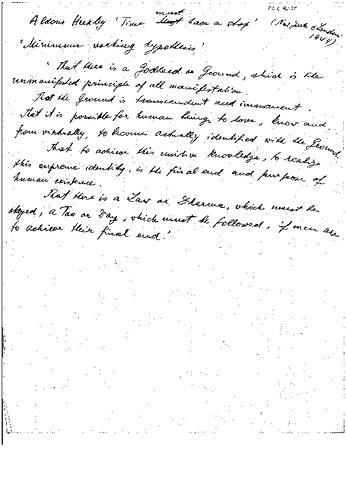 must
Aldous Huxley 'Time must have a stop' (New York & London
1944)
'Minimum working hypothesis'
'That there is a Godhead or Ground, which is the
unmanifested principle of all manifestation.
That the Ground is transcendent and immanent.
That it is possible for human beings to love, know and,
from virtually, to become actually identified with the Ground.
That to achieve this unitive knowledge, to realize
this supreme identity, is the final end and purpose of
human existence.
That there is a Law or Dharma, which must be
obeyed, a Tao or Way, which must be followed, if men are
to achieve their final end.'